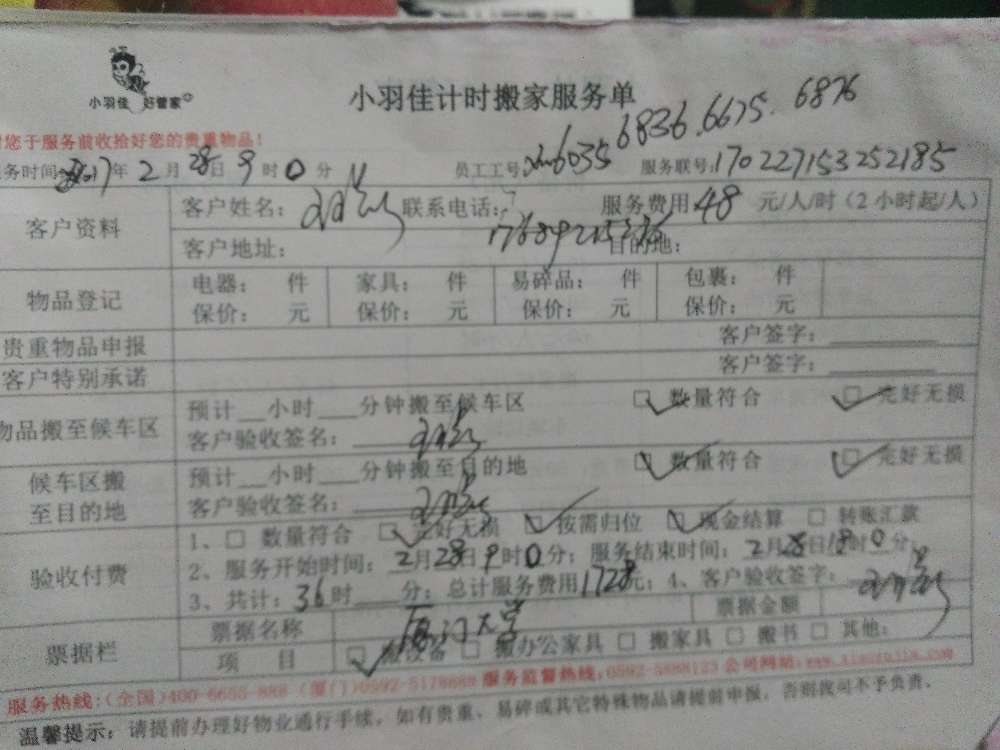 小羽佳 好管家
小羽佳计时搬家服务单
您于服务前收拾好您的贵重物品！
6836.6675.6876
务时间 2017年2月28日9时0分 员工工号 6035 服务联号:170227153252185
客户资料 客户姓名： 联系电话: 服务费用 48 元/人/时（2小时起/人）
客户地址： 目的地：
物品登记 电器： 件 家具： 件 易碎品： 件 包裹： 件
保价： 元 保价： 元 保价： 元 保价： 元
贵重物品申报 客户签字：
客户特别承诺 客户签字：
物品搬至候车区 预计__小时___分钟搬至候车区 ☑ 数量符合 ☑ 完好无损
客户验收签名：
候车区搬至目的地 预计__小时___分钟搬至目的地 ☑ 数量符合 ☑ 完好无损
客户验收签名：
验收付费 1、□ 数量符合 ☑ 完好无损 ☑ 按需归位 ☑ 现金结算 □ 转账汇款
2、服务开始时间：2月28日9时0分；服务结束时间：2月28日18时0分；
3、共计：36时___分；总计服务费用1728元；4、客户验收签字：
票据栏 票据名称 厦门大学 票据金额
项 目 ☑ 搬设备 □ 搬办公家具 □ 搬家具 □ 搬书 □ 其他：
服务热线:(全国)400-6655-888 (厦门)0592-5178888 服务监督热线:0592-5888123 公司网站:www.xiaoyujia.com
温馨提示：请提前办理好物业通行手续，如有贵重、易碎或其它特殊物品请提前申报，否则我司不予负责。